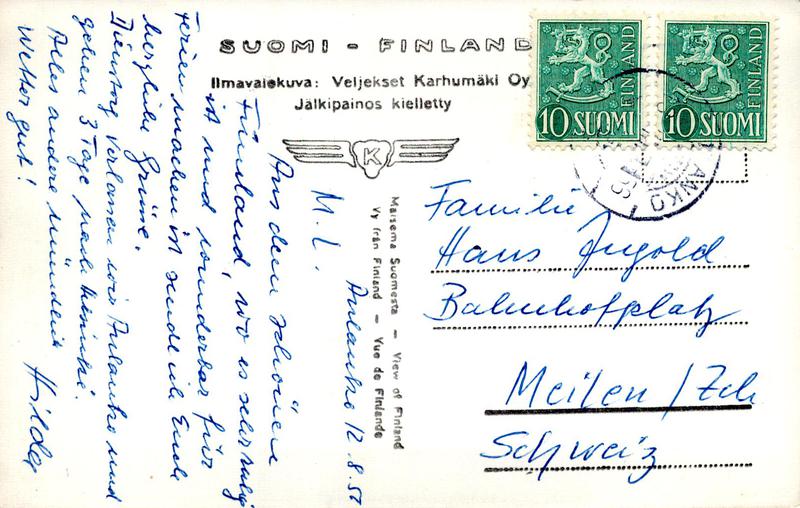 SUOMI - FINLAND
Ilmavalokuva: Veljekset Karhumäki Oy
Jälkipainos kielletty
K
FINLAND
10 SUOMI
FINLAND
10 SUOMI
ANKO
Maisema Suomesta – View of Finland
Vy från Finland – Vue de Finlande
Aulanko 12.8.
M. L.
Aus dem schönen
Finland, wo es sehr ruhig
ist und wunderbar für
Ferien machen ist sende ich Euch
herzliche Grüsse.
Dienstag verlassen wir Aulanko und
gehen 3 Tage nach Helsinki.
Alles andere mündlich
Wetter gut! Hilda
Familie
Hans Jugold
Bahnhofplatz
Meilen / Zch
Schweiz